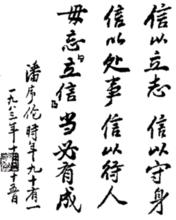 信以立志 信以守身
信以处事 信以待人
毋忘立信 当必有成
潘序伦 時年九十有一
一九八三年十 十五日